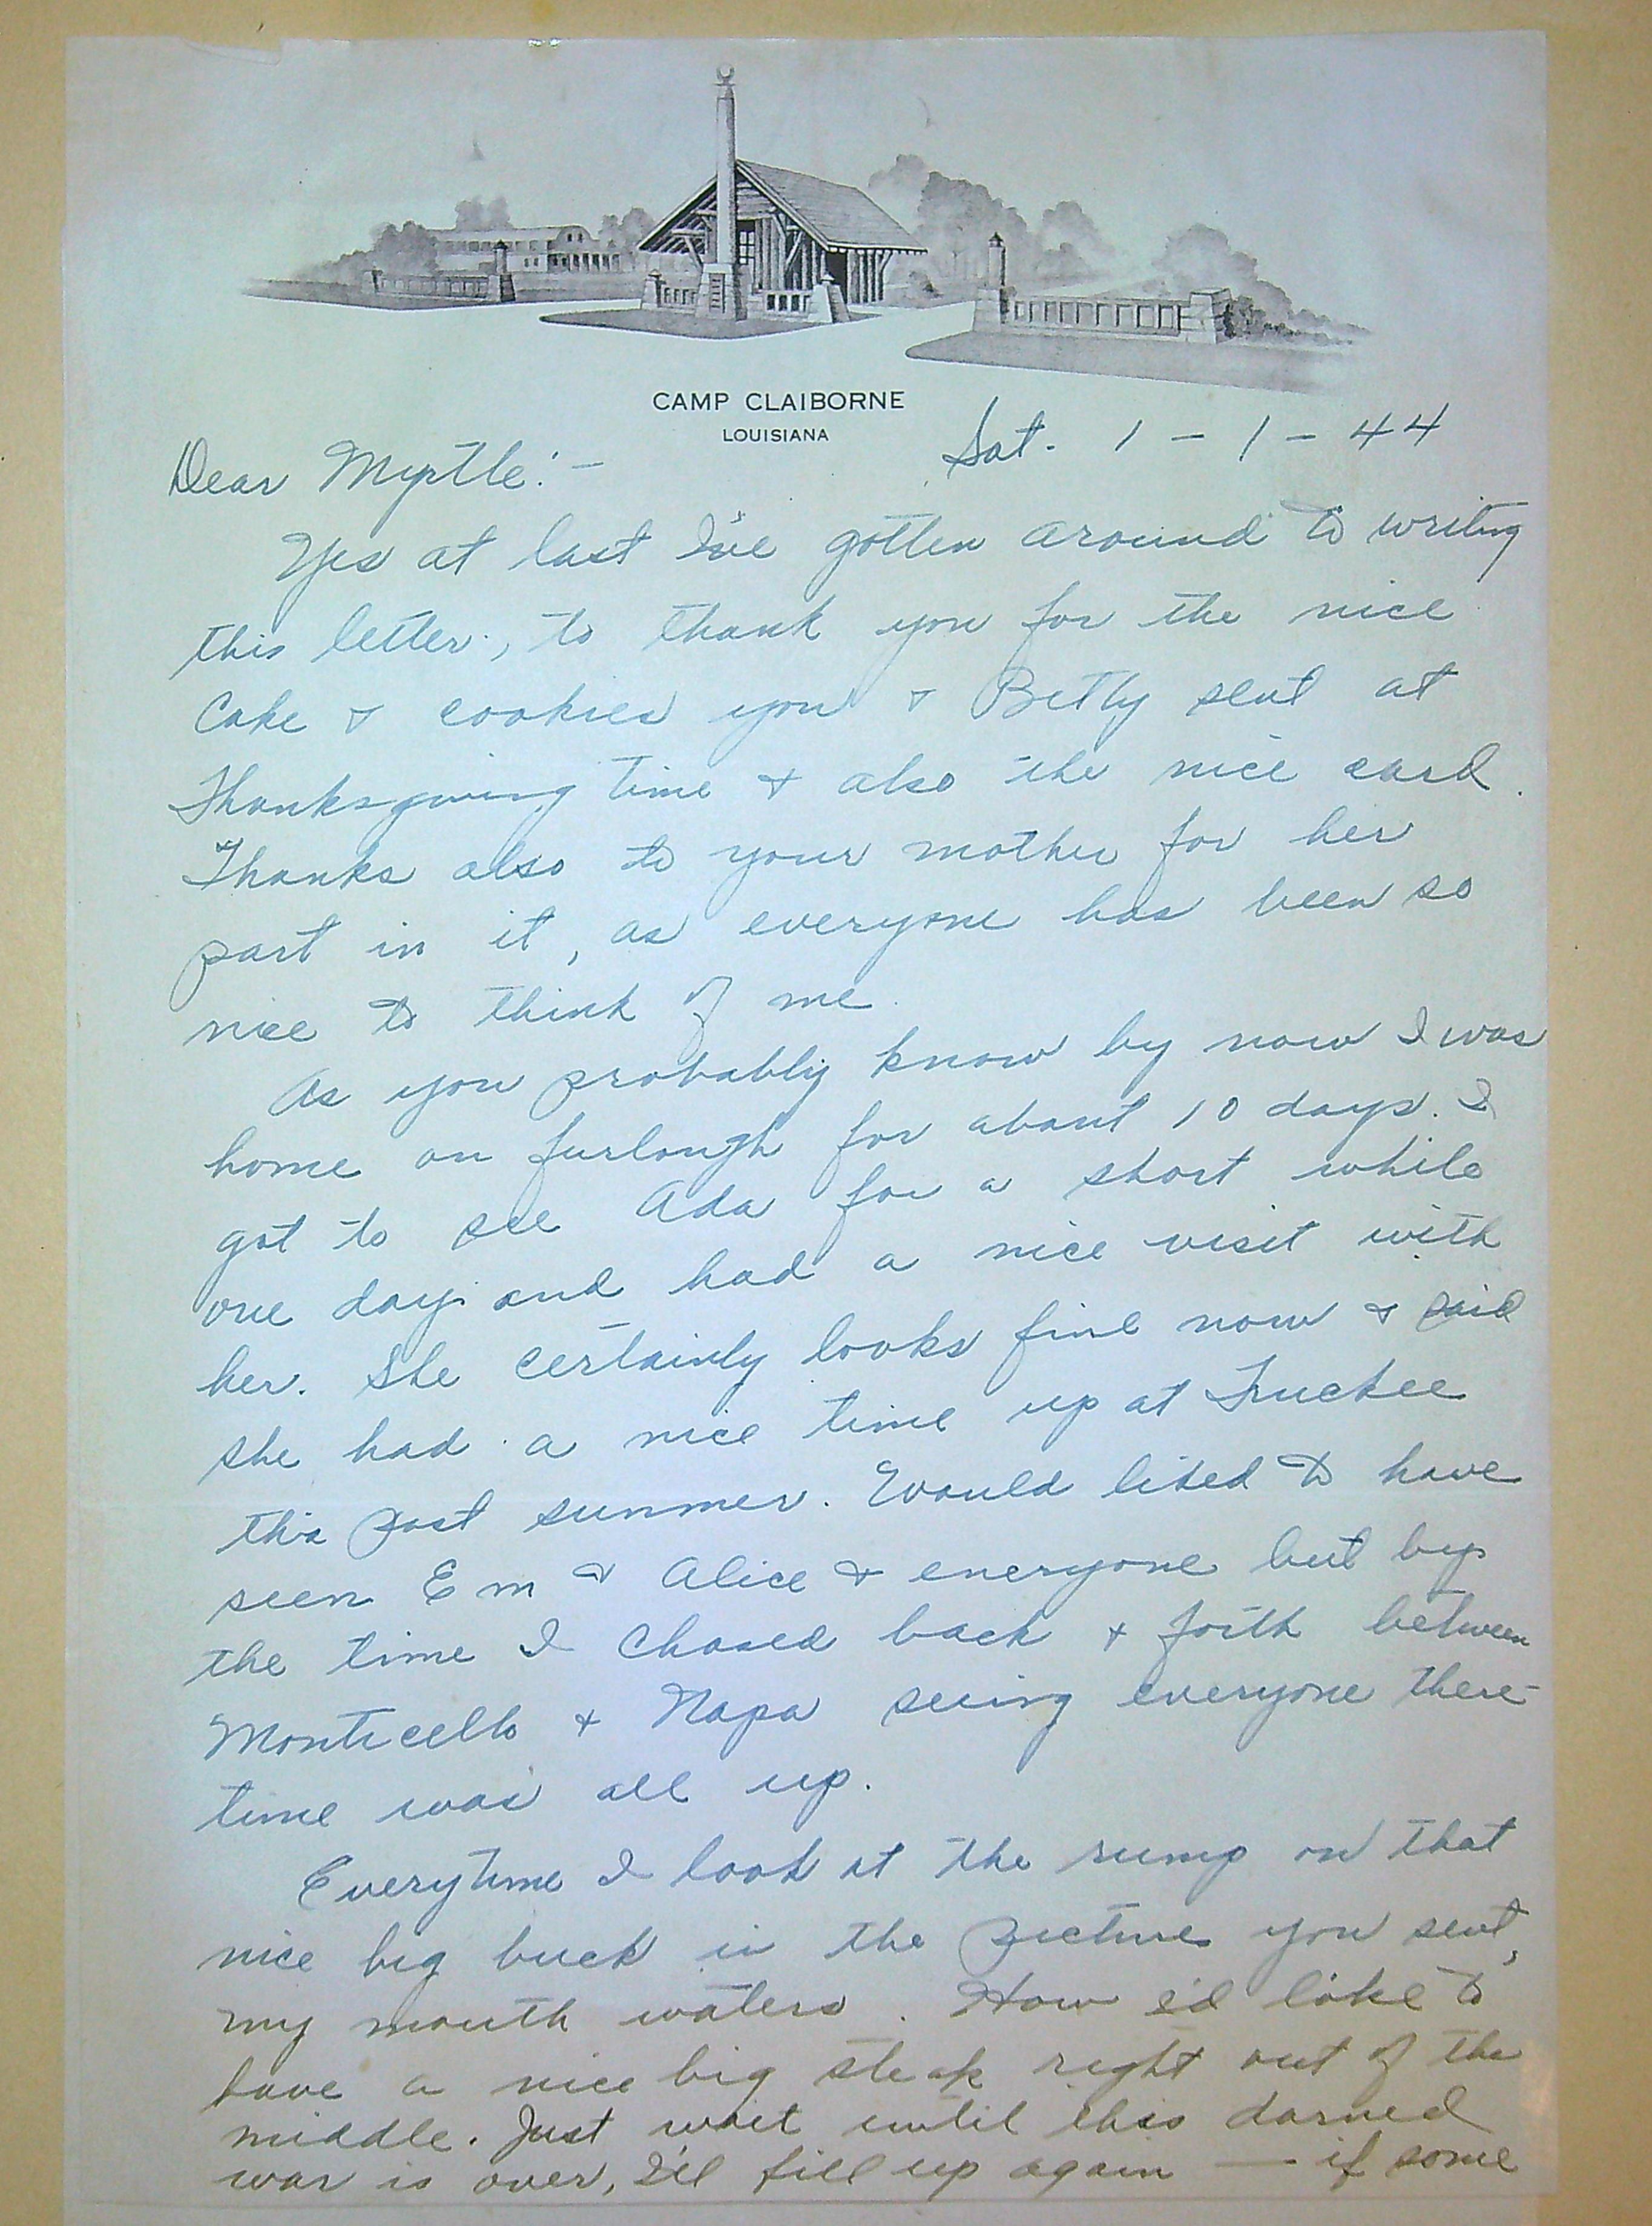 CAMP CLAIBORNE
LOUISIANA
Sat. 1-1-44
Dear Myrtle:-
Yes at last I've gotten around to writing
this letter, to thank you for the nice
cake & cookies you & Betty sent at
Thanksgiving time & also the nice card.
Thanks also to your mother for her
part in it, as everyone has been so
nice to think of me.
As you probably know by now I was
home on furlough for about 10 days. I
got to see Ada for a short while
one day and had a nice visit with
her. She certainly looks fine now & said
she had a nice time up at Truckee
this past summer. Would liked to have
seen Em & Alice & everyone but by
the time I chased back & forth between
Monticello & Napa seeing everyone there
time was all up.
Everytime I look at the rump on that
nice big buck in the picture you sent,
my mouth waters. How I'd like to
have a nice big steak right out of the
middle. Just wait until this darned
war is over, I'll fill up again — if some